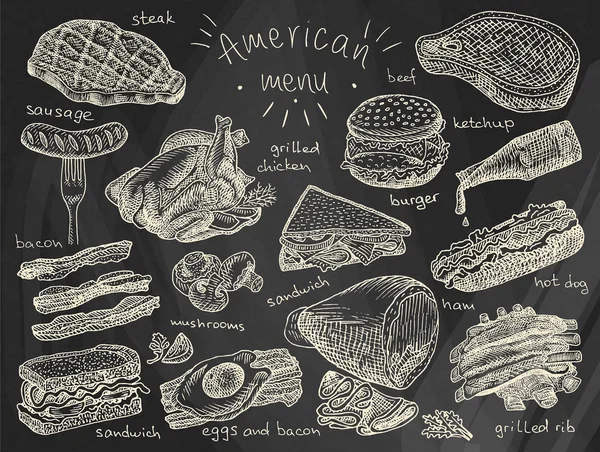 steak
American
menu
beef
sausage
ketchup
grilled
chicken
burger
bacon
sandwich
hot dog
ham
mushrooms
sandwich
eggs and bacon
grilled rib